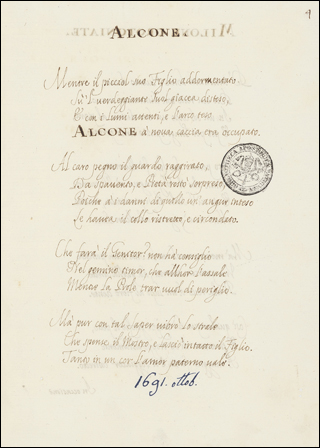 4
ALCONE.
Mentre il picciol suo Figlio addormentato
Su'l verdeggiante suol giacea disteso,
E con i Lumi attenti, e l'arco teso
ALCONE à nova caccia era occupato.
Al caro pegno il guardo raggirato,
Da Spavento, e Pietà restò sorpreso,
Poiche à danni di quello un'angue inteso
Le havea il collo ristretto, e circondato.
Che farà il Genitor? non hà consiglio
Nel gemino timor, che all'hor l'assale
Mentre la Prole trar vuol di periglio.
Mà pur con tal saper vibrò lo strale
Che spinse il Mostro, e lasciò intatto il Figlio.
Tanto in un cor l'amor paterno vale.
1691. ottob.